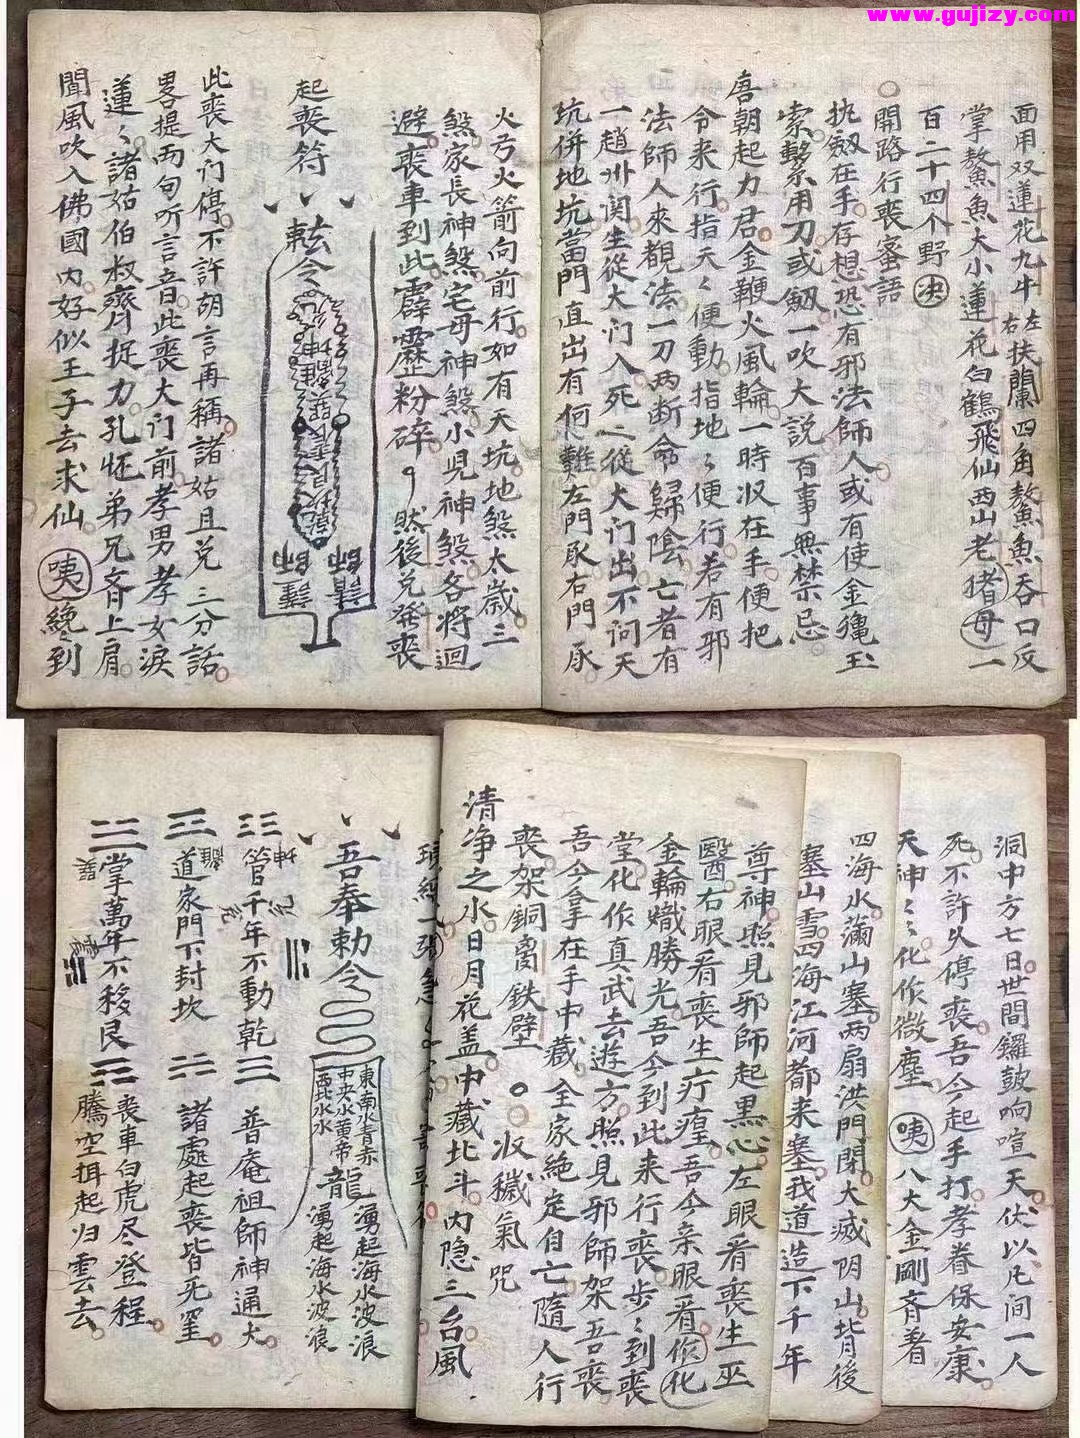 www.gujizy.com
面用双蓮花九牛左右扶蘭四角鰲魚吞口反
掌鰲魚大小蓮花白鶴飛仙西山老猪母一
百二十四个野决
開路行喪蜜語
执劔在手存想恐有邪法師人或有使金
索繫用刀或劔一吹大説百事無禁忌
唐朝起力君金鞭火風輪一時収在手便把
令来行指天〻便動指地〻便行若有邪
法師人來覩法一刀两断命歸陰亡者有
一趙州関生從大门入死〻從大门出不问天
坑併地坑當門直出有何難左門承右門承
火弓火箭向前行如有天坑地煞太歲三
煞家長神煞宅母神煞小児神煞各將迴
避喪車到此霹靂粉碎 然後兑發喪
起喪符
令
此喪大门停不許胡言再稱諸姑且兑三分話
畧提两句听言音此喪大门前孝男孝女淚
蓮〻諸姑伯叔齊捉力孔怀弟兄斉上肩
聞風吹入佛國内好似王子去求仙 咦 絶到
洞中方七日世間鑼鼓响喧天伏以凡间一人
死不許久停喪吾今起手打孝眷保安康
天神〻〻化作微塵 咦 八大金剛斉着
四海水滿山塞两扇洪門閉大滅阴山背後
塞山雪四海江河都来塞我道造下千年
尊神照見邪師起黑心左眼看喪生巫
醫右眼看喪生疔瘴吾今亲眼看作化
金輪熾勝光吾今到此来行喪步〻到喪
堂化作真武去遊方照見邪師架吾喪
吾今拿在手中藏全家絶定自亡隨人行
喪架銅嵩鉄壁 収穢氣咒
清净之水日月花盖中藏北斗内隐三台風
吾奉勅令
東南水青赤
中央水黄帝
西北水水
龍
湧起海水波浪
湧起海水波浪
管千年不動乾 普庵祖師神通大
道家門下封坎 諸處起喪皆死罡
掌萬年不移艮 喪車白虎尽登程
騰空揖起归雲去